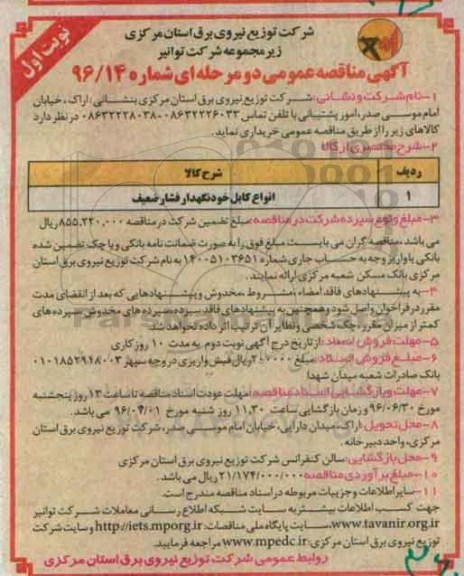 نوبت اول
شرکت توزیع نیروی برق استان مرکزی
زیرمجموعه شرکت توانیر
آگهی مناقصه عمومی دو مرحله ای شماره ۹۶/۱۴
۱-نام شرکت و نشانی: شرکت توزیع نیروی برق استان مرکزی بنشانی: اراک، خیابان
امام موسی صدر، امور پشتیبانی با تلفن تماس ۰۸۶۳۲۲۲۶۰۳۳-۰۸۶۳۲۲۲۸۰۳۸ در نظر دارد
کالاهای زیر را از طریق مناقصه عمومی خریداری نماید.
۲-شرح مختصری از کالا
ردیف شرح کالا
۱ انواع کابل خودنگهدار فشار ضعیف
۳-مبلغ و نوع سپرده شرکت در مناقصه: مبلغ تضمین شرکت در مناقصه ۸۵۵،۲۲۰،۰۰۰ ریال
می باشد. مناقصه گران می بایست مبلغ فوق را به صورت ضمانت نامه بانکی و یا چک تضمین شده
بانکی یا واریز وجه به حساب جاری شماره ۱۴۰۰۵۱۰۳۶۵۱ به نام شرکت توزیع نیروی برق استان
مرکزی بانک مسکن شعبه مرکزی ارائه نمایند.
۴-به پیشنهادهای فاقد امضاء، مشروط، مخدوش و پیشنهادهایی که بعد از انقضای مدت
مقرر در فراخوان واصل شود و همچنین به پیشنهادهای فاقد سپرده، سپرده های مخدوش، سپرده های
کمتر از میزان مقرر، چک شخصی و نظایر آن ترتیب اثر داده نخواهد شد.
۵-مهلت فروش اسناد: از تاریخ درج آگهی نوبت دوم به مدت ۱۰ روز کاری
۶-مبلغ فروش اسناد: مبلغ ۲۰۷۰۰۰ ریال فیش واریزی در وجه سپهر ۰۱۰۱۸۵۲۹۴۸۰۰۳
بانک صادرات شعبه میدان شهدا
۷-مهلت و بازگشایی اسناد مناقصه: مهلت عودت اسناد مناقصه تا ساعت ۱۳ روز پنجشنبه
مورخ ۹۶/۰۶/۳۰ و زمان بازگشایی ساعت ۱۱،۳۰ روز شنبه مورخ ۹۶/۰۷/۰۱ می باشد.
۸-محل تحویل: اراک، میدان دارایی، خیابان امام موسی صدر، شرکت توزیع نیروی برق استان
مرکزی، واحد دبیرخانه.
۹-محل بازگشایی: سالن کنفرانس شرکت توزیع نیروی برق استان مرکزی
۱۰-مبلغ برآوردی مناقصه ۲۱/۱۷۴/۰۰۰/۰۰۰ ریال می باشد.
۱۱-سایر اطلاعات و جزییات مربوطه در اسناد مناقصه مندرج است.
جهت کسب اطلاعات بیشتر به سایت شبکه اطلاع رسانی معاملات شرکت توانیر
www.tavanir.org.ir، سایت پایگاه ملی مناقصات: http://iets.mporg.ir و سایت شرکت
توزیع نیروی برق استان مرکزی: www.mpedc.ir مراجعه فرمایید.
روابط عمومی شرکت توزیع نیروی برق استان مرکزی